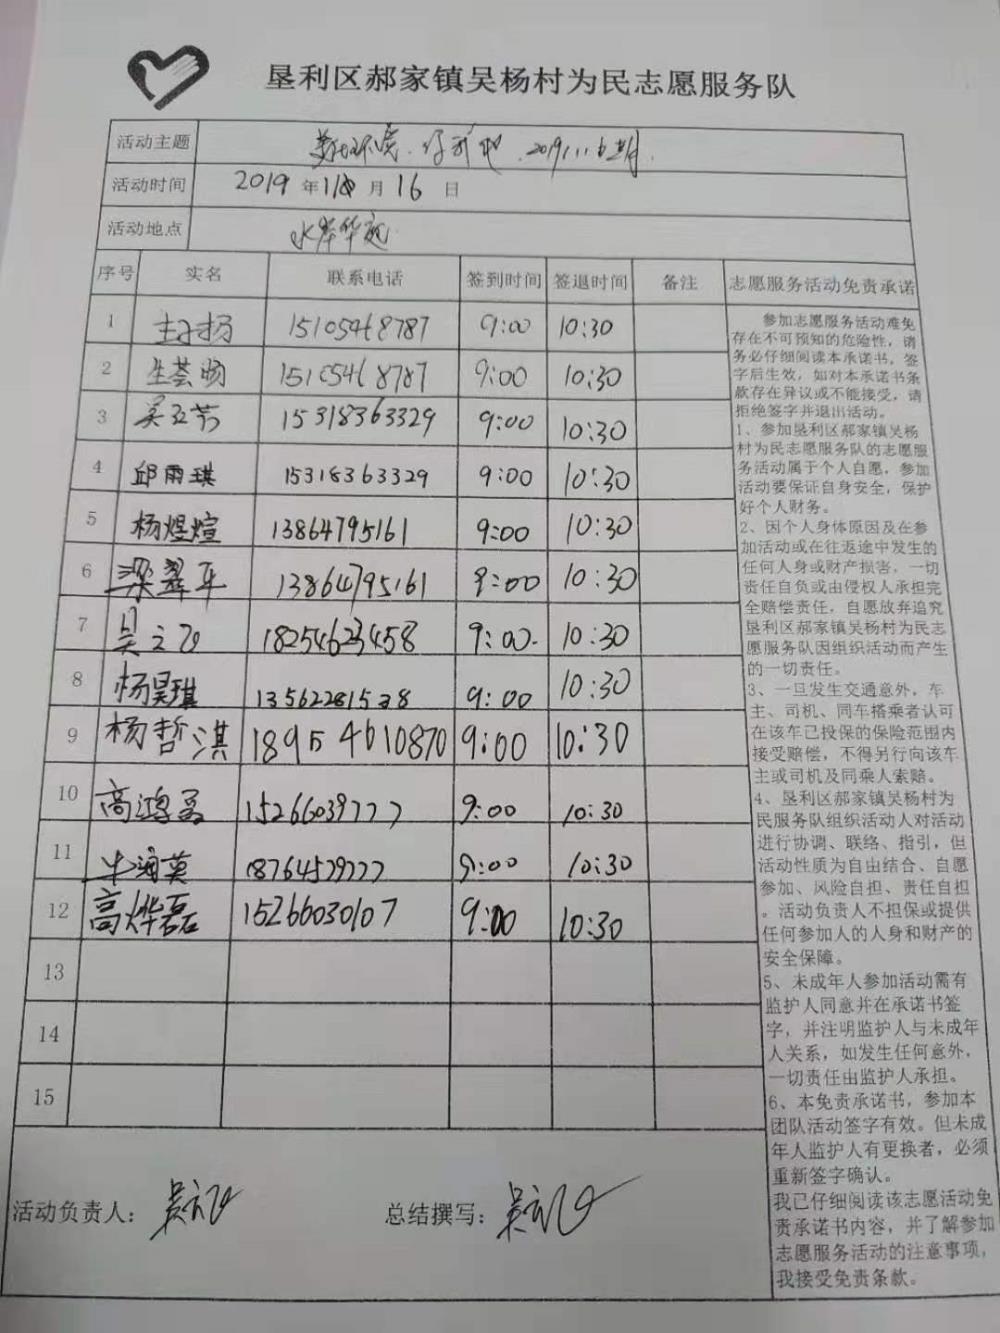 垦利区郝家镇吴杨村为民志愿服务队
活动主题
活动时间 2019 年 11 月 16 日
活动地点 水岸华庭
序号 实名 联系电话 签到时间 签退时间 备注 志愿服务活动免责承诺
1 15105468787 9:00 10:30
2 生荟旸 15105468787 9:00 10:30
3 吴玉芳 15318363329 9:00 10:30
4 邱雨琪 15318363329 9:00 10:30
5 杨煜煊 13864795161 9:00 10:30
6 梁翠平 13864795161 9:00 10:30
7 吴立飞 18254623458 9:00 10:30
8 杨昊琪 13562281538 9:00 10:30
9 杨哲淇 18954610870 9:00 10:30
10 高鸿磊 15266039777 9:00 10:30
11 18764579777 9:00 10:30
12 高烨磊 15266030107 9:00 10:30
13
14
15
参加志愿服务活动难免
存在不可预知的危险性，请
务必仔细阅读本承诺书，签
字后生效，如对本承诺书条
款存在异议或不能接受，请
拒绝签字并退出活动。
1、参加垦利区郝家镇吴杨
村为民志愿服务队的志愿服
务活动属于个人自愿，参加
活动要保证自身安全，保护
好个人财务。
2、因个人身体原因及在参
加活动或在往返途中发生的
任何人身或财产损害，一切
责任自负或由侵权人承担完
全赔偿责任，自愿放弃追究
垦利区郝家镇吴杨村为民志
愿服务队因组织活动而产生
的一切责任。
3、一旦发生交通意外，车
主、司机、同车搭乘者认可
在该车已投保的保险范围内
接受赔偿，不得另行向该车
主或司机及同乘人索赔。
4、垦利区郝家镇吴杨村为
民服务队组织活动人对活动
进行协调、联络、指引，但
活动性质为自由结合、自愿
参加、风险自担、责任自担
。活动负责人不担保或提供
任何参加人的人身和财产的
安全保障。
5、未成年人参加活动需有
监护人同意并在承诺书签
字，并注明监护人与未成年
人关系，如发生任何意外，
一切责任由监护人承担。
6、本免责承诺书，参加本
团队活动签字有效。但未成
年人监护人有更换者，必须
重新签字确认。
我已仔细阅读该志愿活动免
责承诺书内容，并了解参加
志愿服务活动的注意事项，
我接受免责条款。
活动负责人：吴立飞 总结撰写：吴立飞